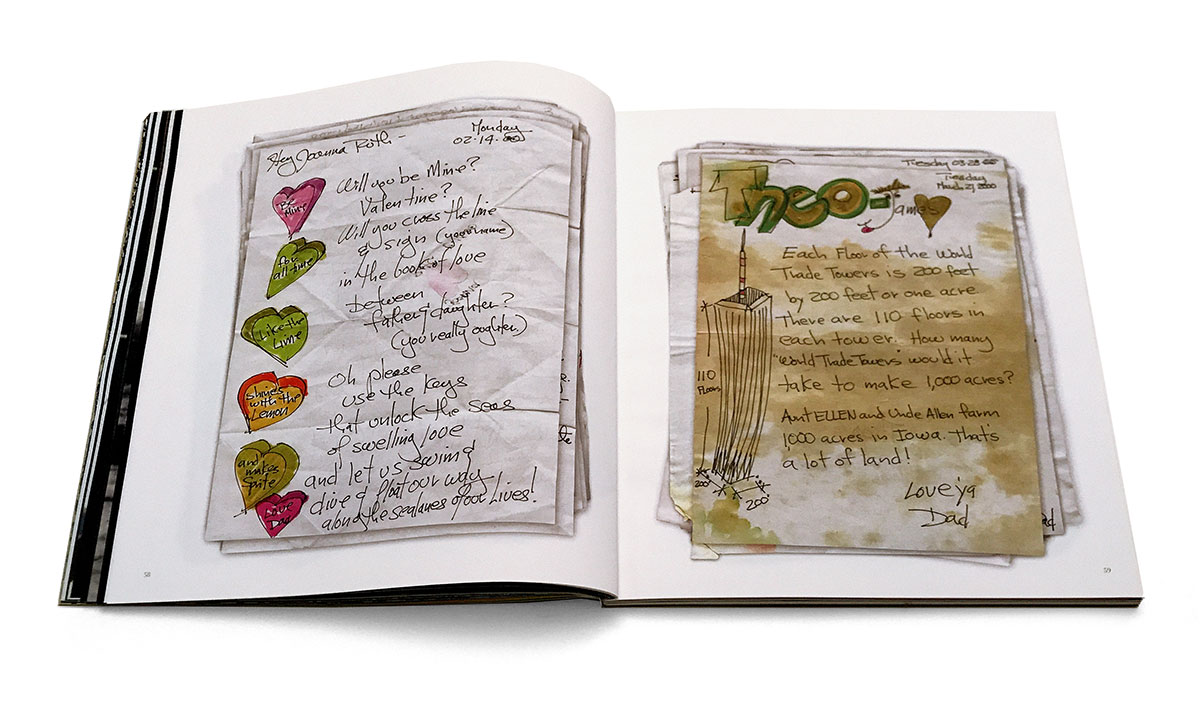 Hey Joanna Ruth -
Monday
02.14.00
Will you be Mine?
Valentine?
Will you cross the line
& sign (your name)
in the book of love
between
father & daughter?
(you really oughter)
Oh please
use the keys
that unlock the seas
of swelling love
and let us swim &
dive & float our way
along the sealanes of our Lives!
Be
Mine
for
all time
(Like the
Lime
shines
with the
Lemon
and
makes
Sprite
Love
Dad
58
Tuesday 03-28-00
Tuesday
March 27, 2000
Theo-
James
Each Floor of the World
Trade Towers is 200 feet
by 200 feet or one acre
There are 110 floors in
each tower. How many
"World Trade Towers" would it
take to make 1,000 acres?
Aunt ELLEN and Uncle Allen farm
1,000 acres in Iowa. That's
a lot of land!
Love ya
Dad
110
Floors
200'
200'
59